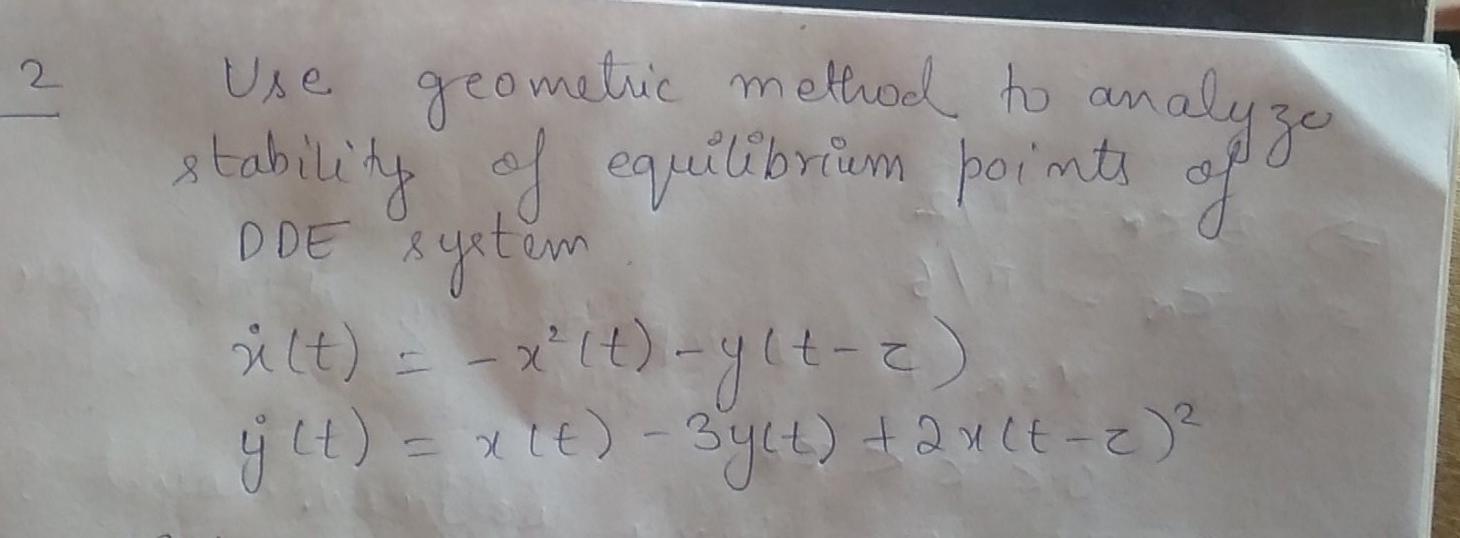 2 Use geometric method to analyze
stability of equilibrium points of
DDE system.
ẋ(t) = -x²(t) - y(t-τ)
ẏ(t) = x(t) - 3y(t) + 2x(t-τ)²